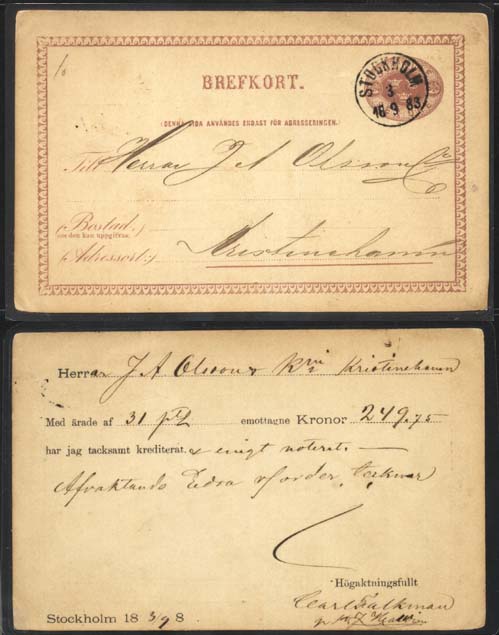 BREFKORT.
STOCKHOLM
3
16 9 83
(DENNA SIDA ANVÄNDES ENDAST FÖR ADRESSERINGEN.)
Till Herrar J A Olsson & Co
(Bostad.)
om den kan uppgifvas.
(Adressort:) Kristinehamn
Herrar J A Olsson & Kristinehamn
Med ärade af 31 pt emottagne Kronor 249.75
har jag tacksamt krediterat. & enigt noterat. —
Afvaktande Edra order tecknar
Högaktningsfullt
Carl Falkman
Stockholm 18 3/9 8